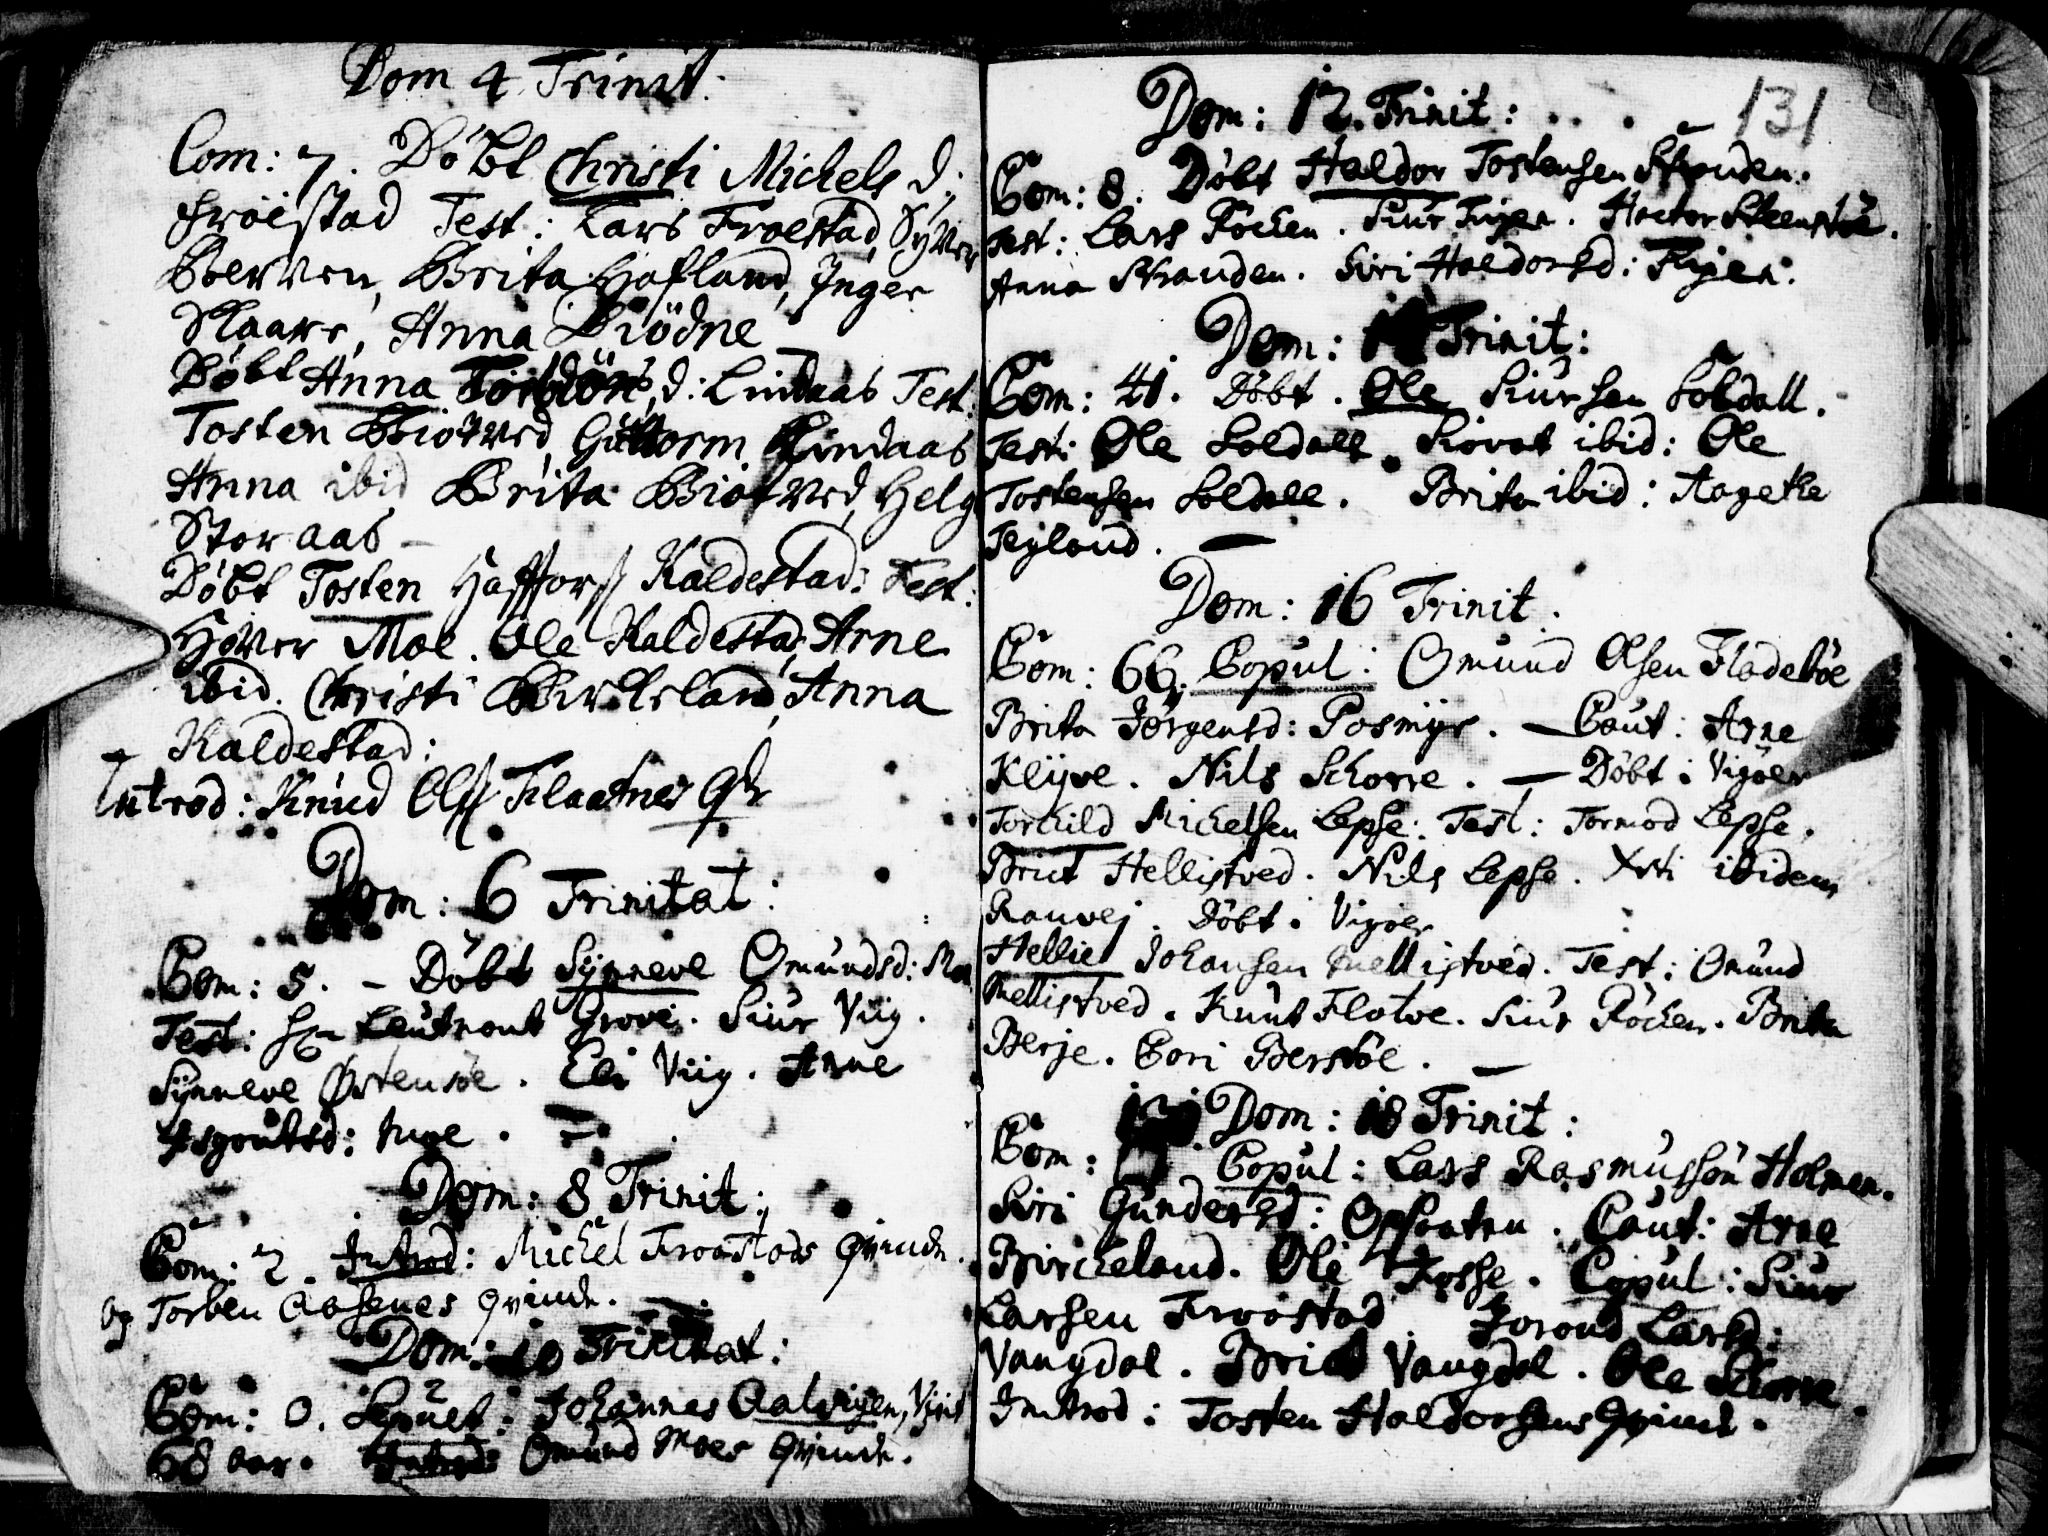 Dom 4 Trinit.
Com: 7. Döbt Christi Michels d:
Froestad Test: Lars Froestad, Syver
Berven, Brita Hafland, Inger
Skaare, Anna Biödne
Döbt Anna Torbiöns d: Lindaas Test:
Tosten Biotved, Guttorm Lindaas
Anna ibid Brita Biotved, Helg
Storaas –
Döbt Tosten Haffors Kaldestad: Test:
Höver Moe. Ole Kaldestad, Arne
ibid. Christi Birkeland, Anna
Kaldestad:
Introd: Knud Ols Flaatnes Q
Dom: 6 Trinitat:
Com: 5. – Döbt Synneve Omundsd: Mo
Test: Leutnant Grove. Siur Viig.
Synneve Östensöe. Eli Viig. Arne
Asgoutsd: .
Dom: 8 Trinit:
Com: 2. Introd: Michel Froestads Qvinde.
og Torben Aasenes Qvinde.
Dom: 10 Trinitat:
Com: 0. Sepult: Johannes Aalvigen, Vixit
68 aar. Introd: Omund Moes Qvinde.
131
Dom: 12. Trinit:
Com: 8. Döbt Haldor Tostensen Skouden.
Test: Lars Röcken. Siur Fugen. Hector Steenstöe.
Anna Skouden. Siri Haldorsd: Fugen.
Dom: Trinit:
Com: 41. Döbt. Ole Siursen Soldall.
Test: Ole Soldall. Siovat ibid: Ole
Tostensen Soldall. Brita ibid: Aagethe
Tejland. –
Dom: 16 Trinit.
Com: 66. Copul: Omund Olsen Fladeböe
Brita Jörgensd: Posmyr. – Caut: Arne
Klyve. Nils Schorre. – Döbt i Vigöer
Torchild Michelsen Lepse: Test: Tormod Lepse.
Brict Hellistved. Nils Lepse. Xsti ibidem
Ranvej. Döbt i Vigöer
Hellie Johansen Hellistved. Test: Omund
Hellistved. Knut Flotve. Siur Röcken. Brita
Berje. Gori Berstöe. –
Dom: 18 Trinit:
Com: 121. Copul: Lars Rasmussön Holmen.
Siri Gundersd: Opsaaten. Caut: Arne
Birckeland. Ole Fosse. Copul: Siur
Larsen Froostad Jorond Larsd:
Vangdal. Brict Vangdal. Ole Skorre.
Introd: Tosten Haldorsens Qvinde.